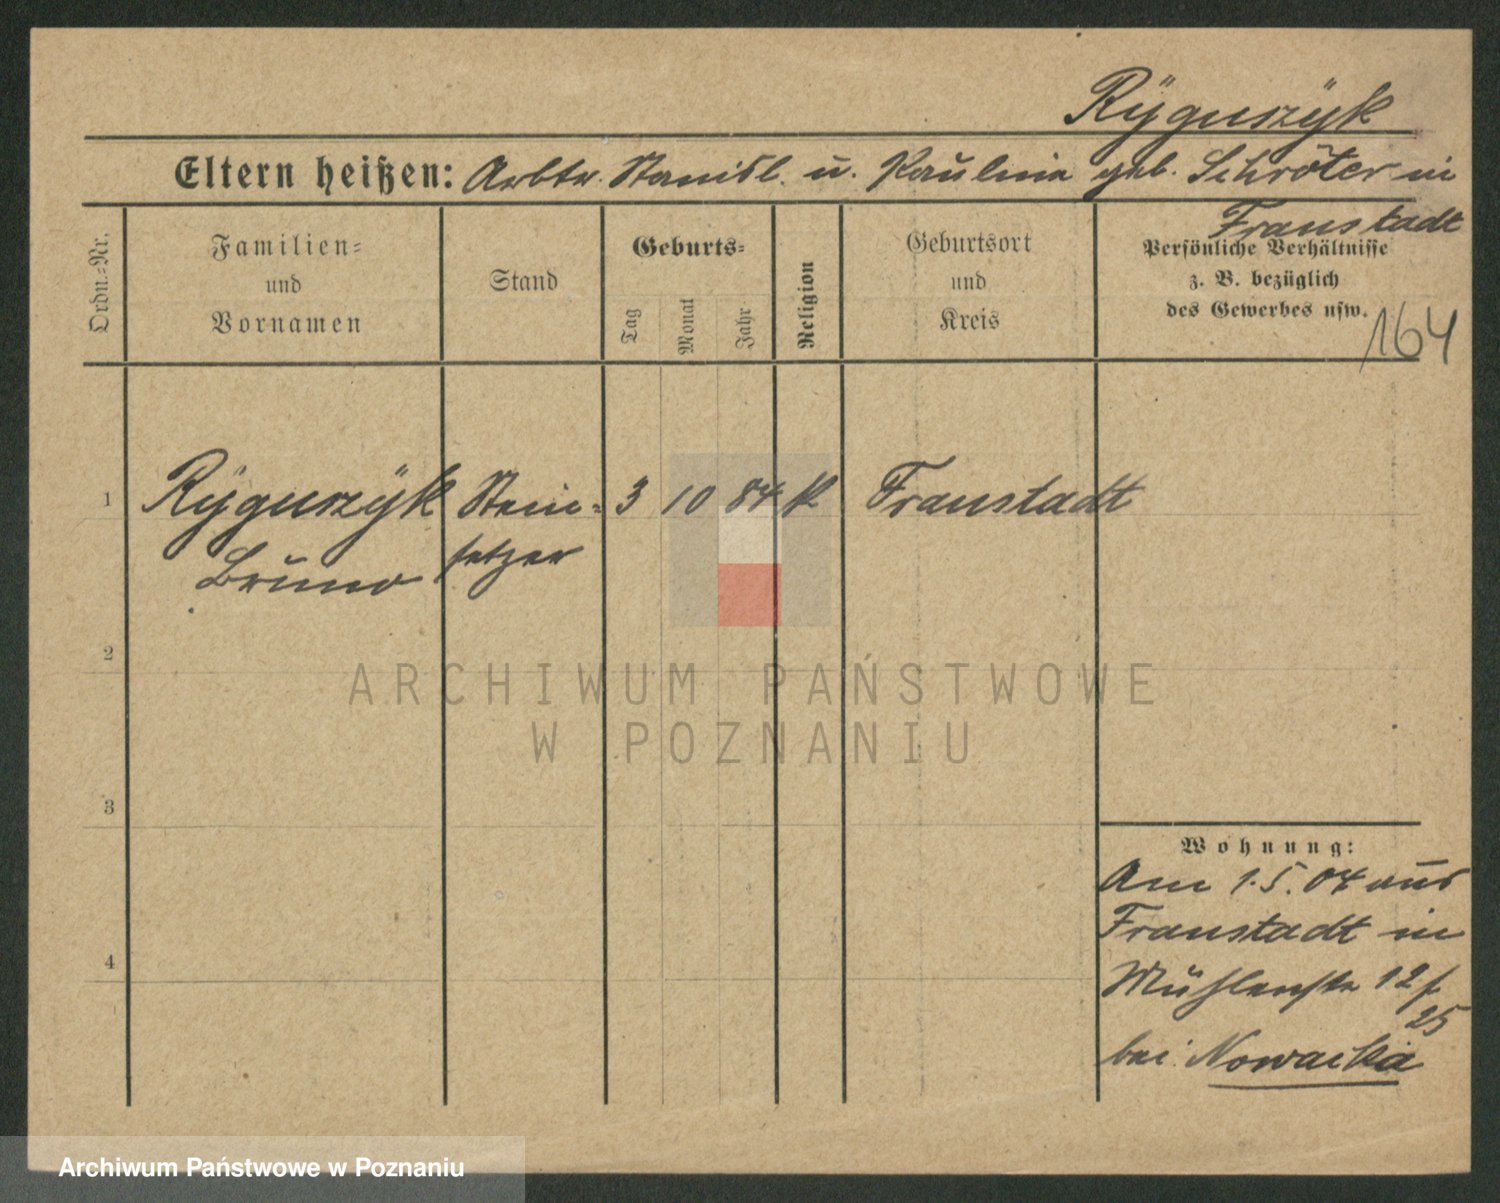 Rÿguszÿk
Eltern heißen: Arbtr. Stanisl. u. Paulina geb. Schröter in
Fraustadt
Ordn.-Nr.
Familien-
und
Vornamen
Stand
Geburts-
Tag
Monat
Jahr
Religion
Geburtsort
und
Kreis
Persönliche Verhältnisse
z. B. bezüglich
des Gewerbes usw.
164
1 Rÿguszÿk Stein- 3 10 84 K Fraustadt
Bruno setzer
2
3
4
Wohnung:
Am 1.5.04 aus
Fraustadt in
Mühlenstr 12
25
bei Nowacka
ARCHIWUM PAŃSTWOWE
W POZNANIU
Archiwum Państwowe w Poznaniu